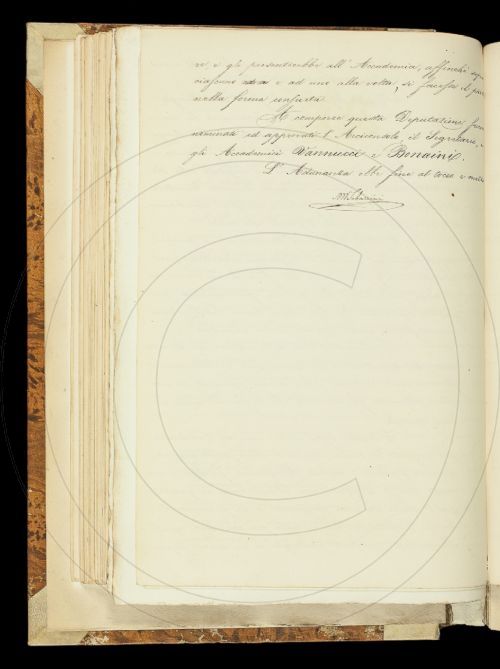 re e gli presenterebbe all'Accademia, affinchè
ciascuno e ad uno alla volta, si facesse il
nella forma consueta.
A comporre questa Deputazione
nominati ed approvati l'Arciconsolo il Segretario,
gli Accademici Vannucci e Bonaini.
L'Adunanza ebbe fine al tocco e